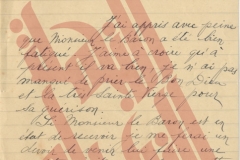 J'ai appris avec peine
que Monsieur le Baron a été bien
fatigué. J'aime à croire qu'à
présent il va bien, je n'ai pas
manqué de prier le Bon Dieu
et la très Sainte Vierge pour
sa guérison.
Si Monsieur le Baron est en
état de recevoir je me ferai un
devoir de lui faire une